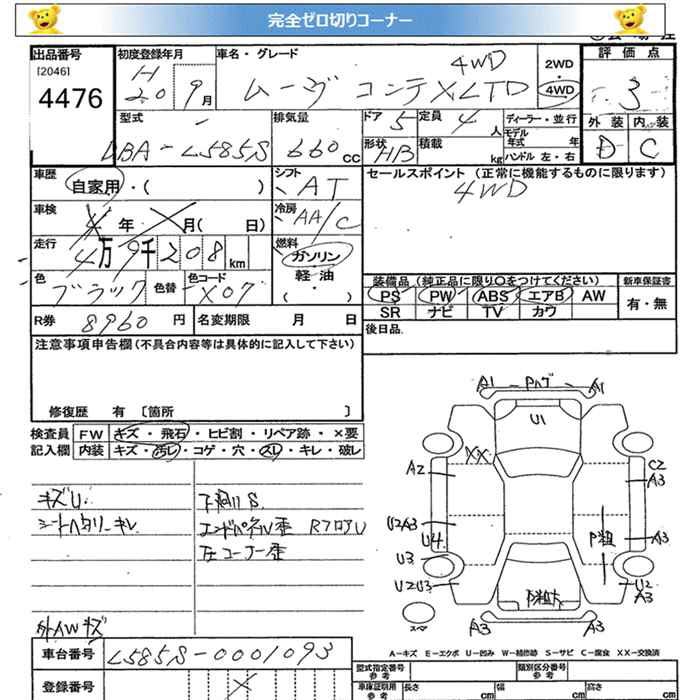 完全ゼロ切りコーナー
出品番号 初度登録年月 車名・グレード 2WD・4WD 評価点
[2046] 4476
H20 9月 ムーヴ コンテXLTD 4WD 3
型式 排気量 ドア 5 定員 4人 ディーラー・並行 外装 内装
DBA-L585S 660cc 形状 HB 積載 kg モデル年式 年 ハンドル 左・右 D C
車歴 自家用・( ) シフト AT セールスポイント (正常に機能するものに限ります)
4WD
車検 年 月( 日) 冷房 AA/C
走行 4万9千208km 燃料 ガソリン 軽油 ・( )
色 ブラック 色替 色コード X07
装備品 (純正品に限り○をつけてください) 新車保証書
PS PW ABS エアB AW 有・無
SR ナビ TV カワ
R券 8960円 名変期限 月 日 後日品
注意事項申告欄 (不具合内容等は具体的に記入して下さい)
修復歴 有 〔箇所 〕
検査員 FW キズ・飛石・ヒビ割・リペア跡・×要
記入欄 内装 キズ・汚レ・コゲ・穴・スレ・キレ・破レ
キズU 下廻りS
シートヘタリ キレ エンドパネル歪 RフロアU
左コーナー歪
外AWキズ
A1 Pハゲ A1
U1
XX
A2 C2
A3
U2A3
U4 P粗 A3
U3
U2U3 U2
A3
P粗大
スペア
A3 A3
A-キズ E-エクボ U-凹み W-補修跡 S-サビ C-腐食 XX-交換済
車台番号 L585S-0001093
登録番号
型式指定番号 参考 類別区分番号 参考
車庫証明用 参考 長さ cm 幅 cm 高さ cm